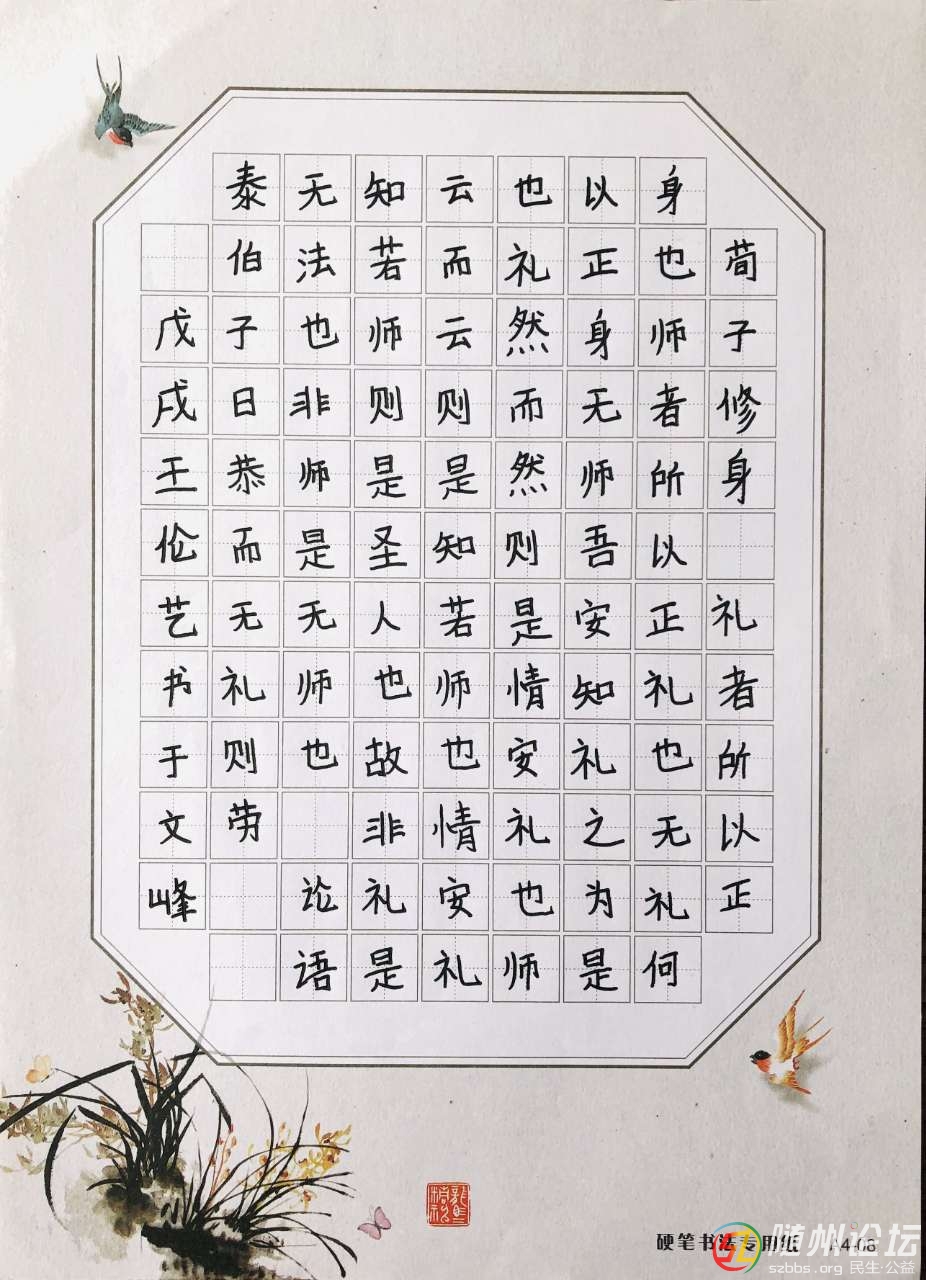 荀子修身 礼者所以正
身也师者所以正礼也无礼何
以正身无师吾安知礼之为是
也礼然而然则是情安礼也师
云而云则是知若师也情安礼
知若师则是圣人也故非礼是
无法也非师是无师也 论语
泰伯子曰恭而无礼则劳
戊戌王伦艺书于文峰
硬笔书法专用纸
随州论坛
szbbs.org 民生·公益